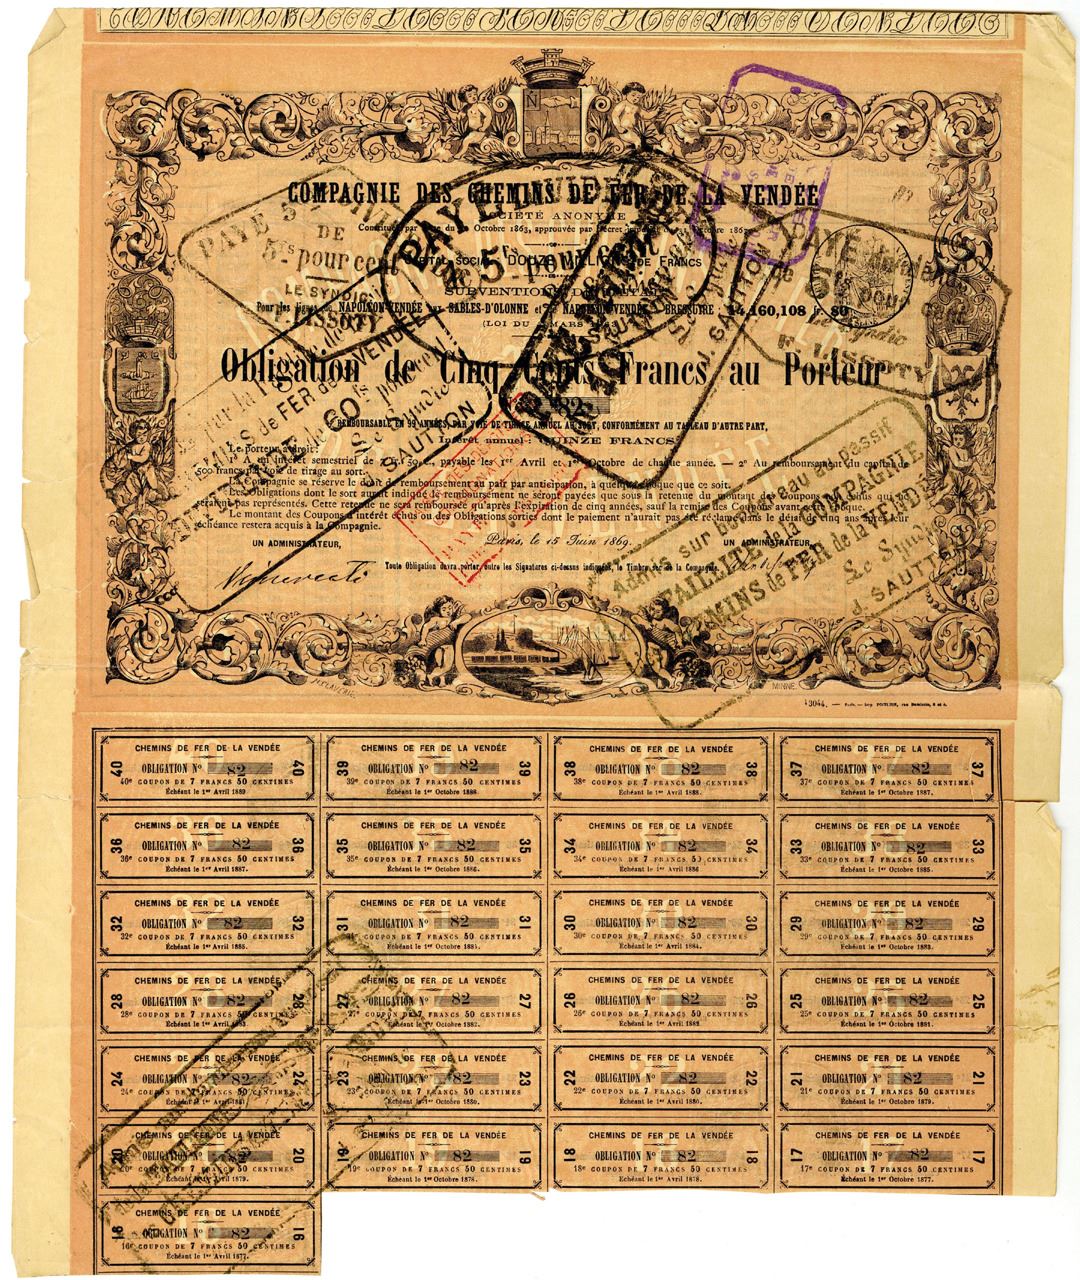 COMPAGNIE DES CHEMINS DE FER DE LA VENDÉE
SOCIÉTÉ ANONYME
Octobre 1863, approuvée par décret
DOUZE MILLIONS DE FRANCS
SUBVENTIONS
Pour les lignes de NAPOLÉON-VENDÉE aux SABLES-D'OLONNE et de NAPOLÉON-VENDÉE à BRESSUIRE : 14,160,108 fr. 80
Obligation de Cinq Cents Francs au Porteur
82
REMBOURSABLE EN 99 ANNÉES, PAR VOIE DE TIRAGE ANNUEL AU SORT, CONFORMÉMENT AU TABLEAU D'AUTRE PART,
Intérêt annuel : QUINZE FRANCS
Le porteur a droit :
1° A un intérêt semestriel de 7 fr. 50 c., payable les 1er Avril et 1er Octobre de chaque année. — 2° Au remboursement du capital de
500 francs par voie de tirage au sort.
La Compagnie se réserve le droit de remboursement au pair par anticipation, à quelque époque que ce soit.
Les Obligations dont le sort aurait indiqué le remboursement ne seront payées que sous la retenue du montant des Coupons échus qui ne
seraient pas représentés. Cette retenue ne sera remboursée qu'après l'expiration de cinq années, sauf la remise des Coupons avant cette époque.
Le montant des Coupons d'intérêt échus ou des Obligations sorties dont le paiement n'aurait pas été réclamé dans le délai de cinq ans après leur
échéance restera acquis à la Compagnie.
UN ADMINISTRATEUR,
Paris, le 15 Juin 1869.
UN ADMINISTRATEUR,
Toute Obligation devra porter, outre les Signatures ci-dessus indiquées, le Timbre sec de la Compagnie.
PAYE
DE
5frs pour cent
LE SYNDIC
F. LISSOTY
CHEMINS de FER de la VENDÉE
Le Syndic
J. SAUTTON
Admis sur nouveau passif
FAILLITE de la COMPAGNIE
CHEMINS de FER de la VENDÉE
Le Syndic
J. SAUTTON
MINNE.
13044. — Paris. — Imp. POITEVIN, rue Damiette, 2 et 4.
CHEMINS DE FER DE LA VENDÉE
40 OBLIGATION No 82 40
40e COUPON DE 7 FRANCS 50 CENTIMES
Échéant le 1er Avril 1889
CHEMINS DE FER DE LA VENDÉE
39 OBLIGATION No 82 39
39e COUPON DE 7 FRANCS 50 CENTIMES
Échéant le 1er Octobre 1888
CHEMINS DE FER DE LA VENDÉE
38 OBLIGATION No 82 38
38e COUPON DE 7 FRANCS 50 CENTIMES
Échéant le 1er Avril 1888.
CHEMINS DE FER DE LA VENDÉE
37 OBLIGATION No 82 37
37e COUPON DE 7 FRANCS 50 CENTIMES
Échéant le 1er Octobre 1887.
CHEMINS DE FER DE LA VENDÉE
36 OBLIGATION No 82 36
36e COUPON DE 7 FRANCS 50 CENTIMES
Échéant le 1er Avril 1887.
CHEMINS DE FER DE LA VENDÉE
35 OBLIGATION No 82 35
35e COUPON DE 7 FRANCS 50 CENTIMES
Échéant le 1er Octobre 1886.
CHEMINS DE FER DE LA VENDÉE
34 OBLIGATION No 82 34
34e COUPON DE 7 FRANCS 50 CENTIMES
Échéant le 1er Avril 1886
CHEMINS DE FER DE LA VENDÉE
33 OBLIGATION No 82 33
33e COUPON DE 7 FRANCS 50 CENTIMES
Échéant le 1er Octobre 1885.
CHEMINS DE FER DE LA VENDÉE
32 OBLIGATION No 82 32
32e COUPON DE 7 FRANCS 50 CENTIMES
Échéant le 1er Avril 1885.
CHEMINS DE FER DE LA VENDÉE
31 OBLIGATION No 82 31
31e COUPON DE 7 FRANCS 50 CENTIMES
Échéant le 1er Octobre 1884.
CHEMINS DE FER DE LA VENDÉE
30 OBLIGATION No 82 30
30e COUPON DE 7 FRANCS 50 CENTIMES
Échéant le 1er Avril 1884.
CHEMINS DE FER DE LA VENDÉE
29 OBLIGATION No 82 29
29e COUPON DE 7 FRANCS 50 CENTIMES
Échéant le 1er Octobre 1883.
CHEMINS DE FER DE LA VENDÉE
28 OBLIGATION No 82 28
28e COUPON DE 7 FRANCS 50 CENTIMES
Échéant le 1er Avril 1883.
CHEMINS DE FER DE LA VENDÉE
27 OBLIGATION No 82 27
27e COUPON DE 7 FRANCS 50 CENTIMES
Échéant le 1er Octobre 1882.
CHEMINS DE FER DE LA VENDÉE
26 OBLIGATION No 82 26
26e COUPON DE 7 FRANCS 50 CENTIMES
Échéant le 1er Avril 1882.
CHEMINS DE FER DE LA VENDÉE
25 OBLIGATION No 82 25
25e COUPON DE 7 FRANCS 50 CENTIMES
Échéant le 1er Octobre 1881.
CHEMINS DE FER DE LA VENDÉE
24 OBLIGATION No 82 24
24e COUPON DE 7 FRANCS 50 CENTIMES
Échéant le 1er Avril 1881
CHEMINS DE FER DE LA VENDÉE
23 OBLIGATION No 82 23
23e COUPON DE 7 FRANCS 50 CENTIMES
Échéant le 1er Octobre 1880.
CHEMINS DE FER DE LA VENDÉE
22 OBLIGATION No 82 22
22e COUPON DE 7 FRANCS 50 CENTIMES
Échéant le 1er Avril 1880.
CHEMINS DE FER DE LA VENDÉE
21 OBLIGATION No 82 21
21e COUPON DE 7 FRANCS 50 CENTIMES
Échéant le 1er Octobre 1879.
CHEMINS DE FER DE LA VENDÉE
20 OBLIGATION No 82 20
20e COUPON DE 7 FRANCS 50 CENTIMES
Échéant le 1er Avril 1879.
CHEMINS DE FER DE LA VENDÉE
19 OBLIGATION No 82 19
19e COUPON DE 7 FRANCS 50 CENTIMES
Échéant le 1er Octobre 1878.
CHEMINS DE FER DE LA VENDÉE
18 OBLIGATION No 82 18
18e COUPON DE 7 FRANCS 50 CENTIMES
Échéant le 1er Avril 1878.
CHEMINS DE FER DE LA VENDÉE
17 OBLIGATION No 82 17
17e COUPON DE 7 FRANCS 50 CENTIMES
Échéant le 1er Octobre 1877
CHEMINS DE FER DE LA VENDÉE
16 OBLIGATION No 82 16
16e COUPON DE 7 FRANCS 50 CENTIMES
Échéant le 1er Avril 1877.